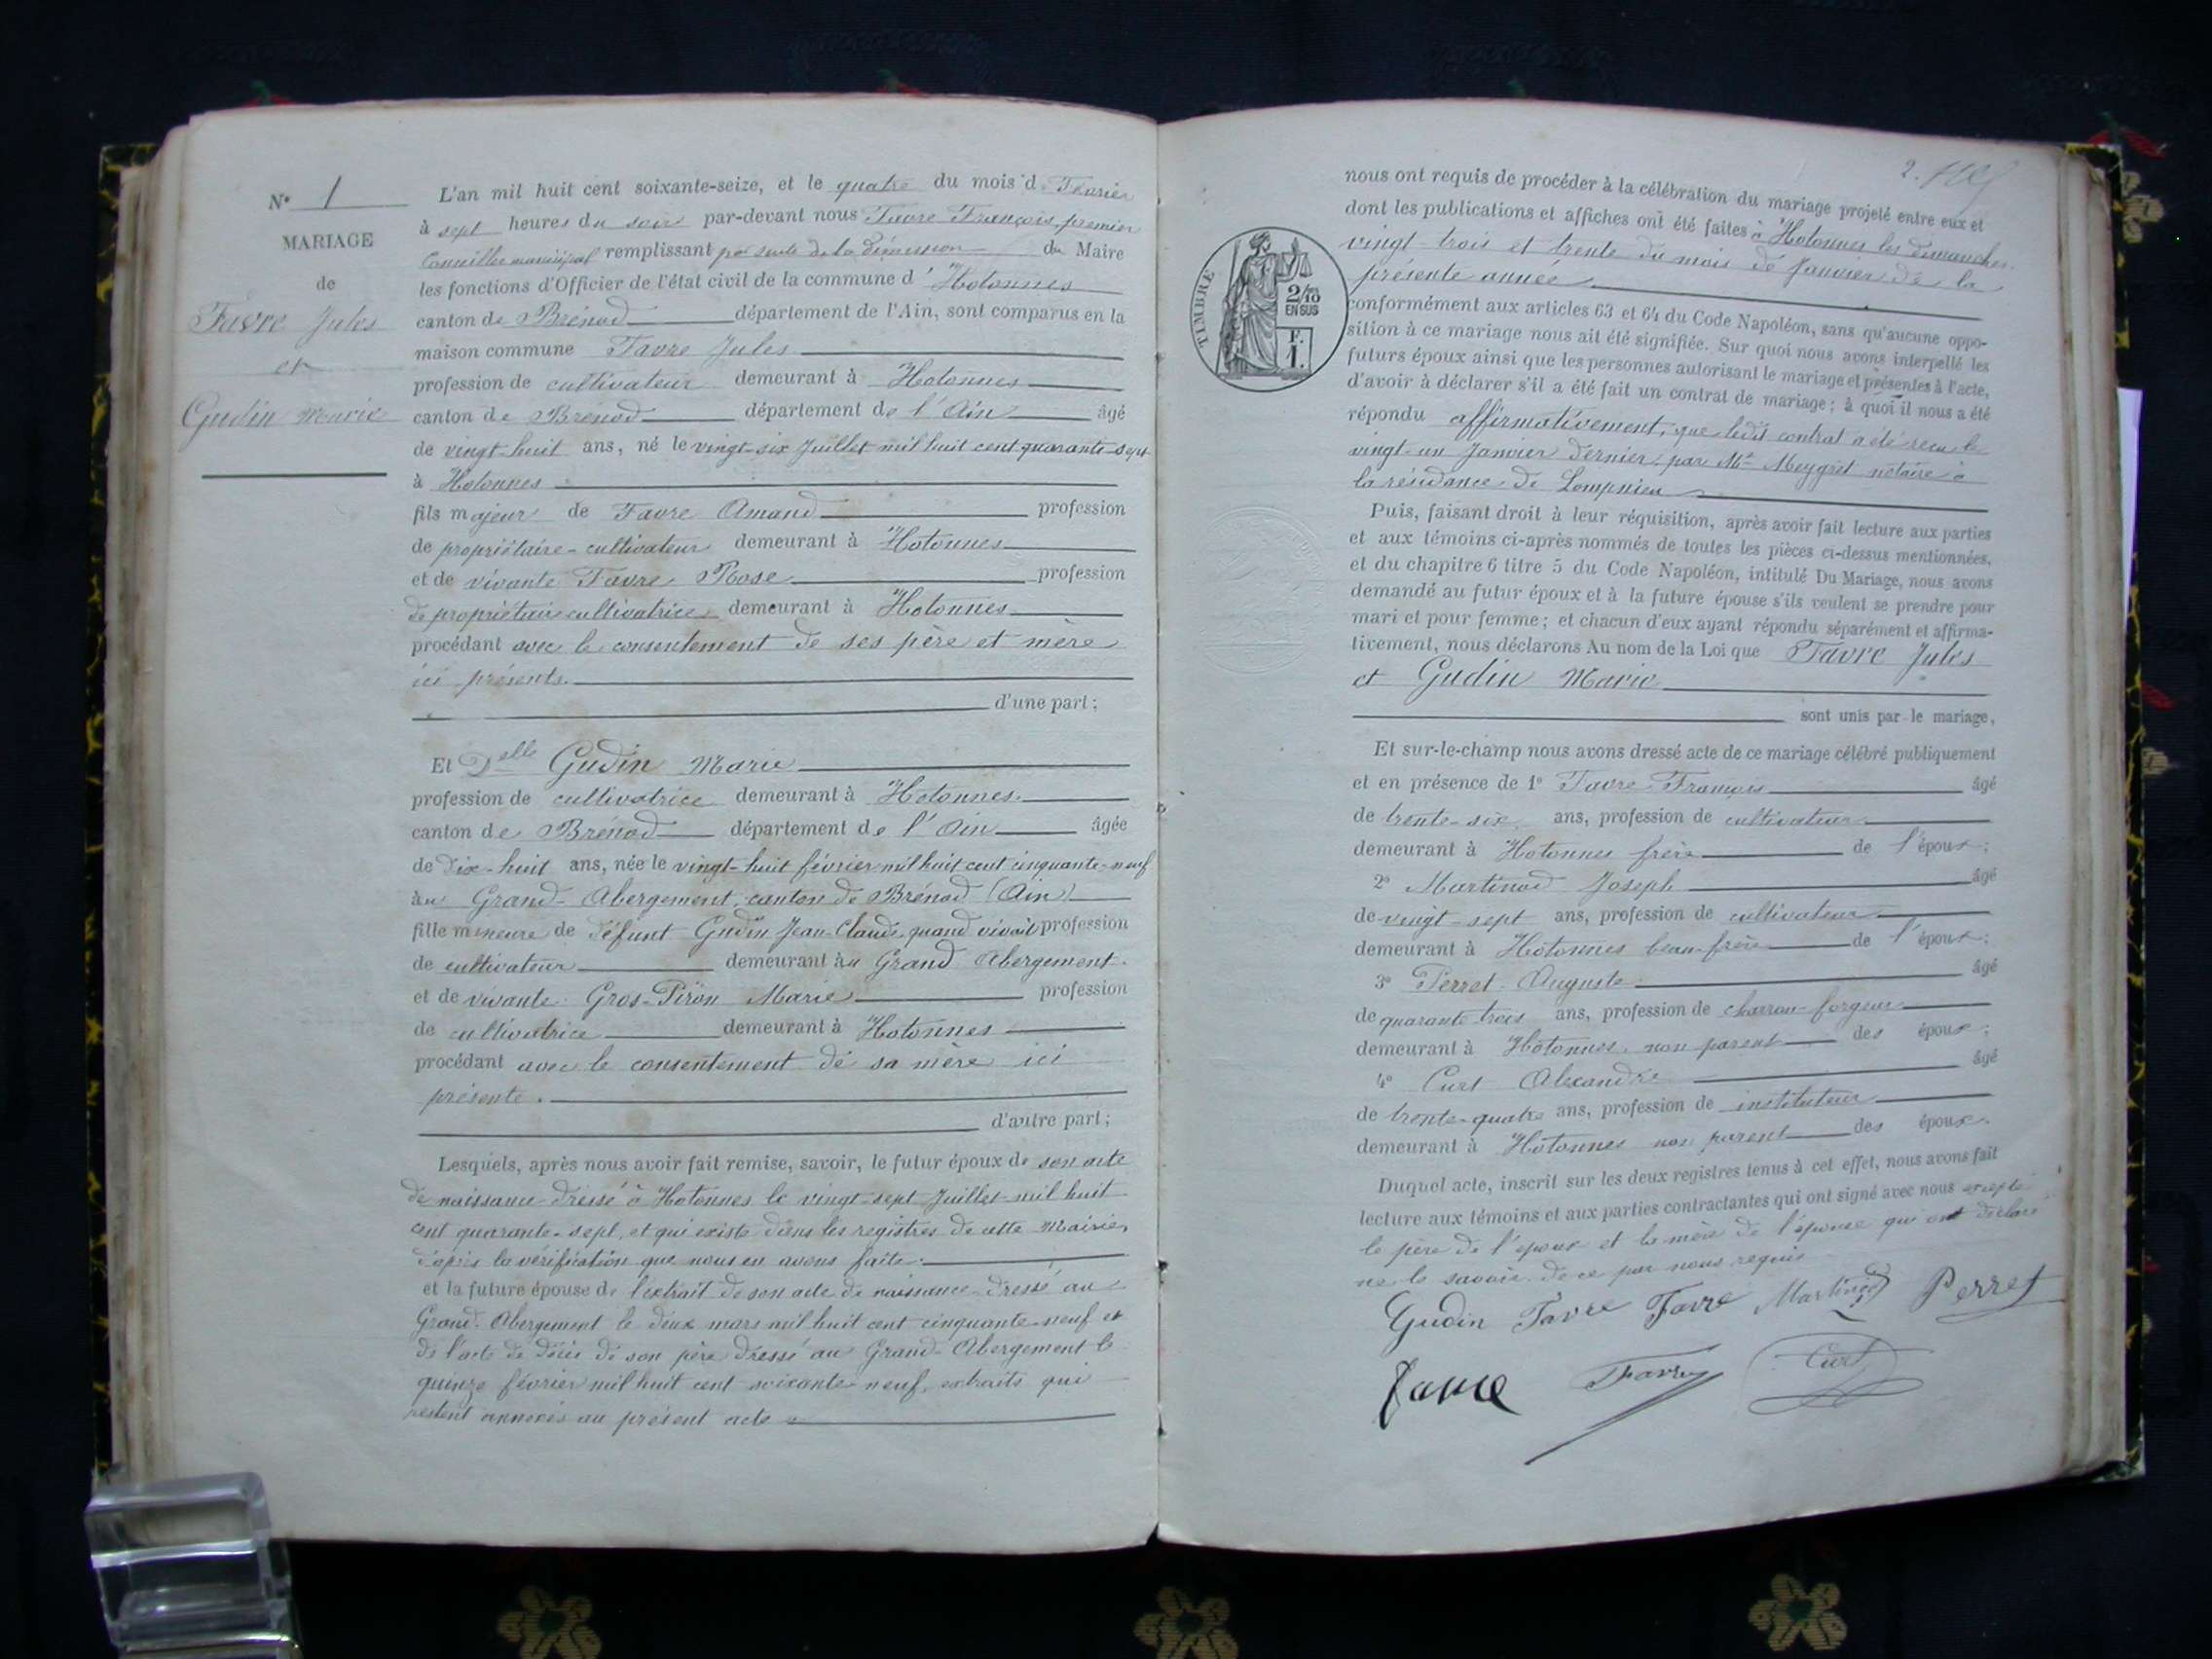 N° 1
MARIAGE
de
Favre Jules
et
Gudin Marie
L'an mil huit cent soixante-seize, et le quatre du mois de Février
à sept heures du soir par-devant nous Favre François, premier
Conseiller municipal remplissant par suite de la démission du Maire
les fonctions d'Officier de l'état civil de la commune d'Hotonnes
canton de Brénod département de l'Ain, sont comparus en la
maison commune Favre Jules
profession de cultivateur demeurant à Hotonnes
canton de Brénod département de l'Ain âgé
de vingt-huit ans, né le vingt-six Juillet mil huit cent quarante-sept
à Hotonnes
fils majeur de Favre Amand profession
de propriétaire-cultivateur demeurant à Hotonnes
et de vivante Favre Rose profession
de propriétaire cultivatrice demeurant à Hotonnes
procédant avec le consentement de ses père et mère
ici présents.
d'une part;
Et Delle Gudin Marie
profession de cultivatrice demeurant à Hotonnes.
canton de Brénod département de l'Ain âgée
de dix-huit ans, née le vingt-huit février mil huit cent cinquante-neuf
au Grand-Abergement, canton de Brénod (Ain)
fille mineure de défunt Gudin Jean-Claude, quand vivait profession
de cultivateur demeurant au Grand Abergement.
et de vivante Gros-Piron Marie profession
de cultivatrice demeurant à Hotonnes
procédant avec le consentement de sa mère ici
présente.
d'autre part;
Lesquels, après nous avoir fait remise, savoir, le futur époux de son acte
de naissance dressé à Hotonnes le vingt-sept Juillet mil huit
cent quarante-sept, et qui existe dans les registres de cette Mairie,
d'après la vérification que nous en avons faite.
et la future épouse de l'extrait de son acte de naissance dressé au
Grand-Abergement le deux mars mil huit cent cinquante-neuf et
de l'acte de décès de son père dressé au Grand-Abergement le
quinze février mil huit cent soixante-neuf, extraits qui
restent annexés au présent acte
2.
TIMBRE
2/10
EN SUS
F.
1.
nous ont requis de procéder à la célébration du mariage projeté entre eux et
dont les publications et affiches ont été faites à Hotonnes les dimanches
vingt-trois et trente du mois de Janvier de la
présente année
conformément aux articles 63 et 64 du Code Napoléon, sans qu'aucune oppo-
sition à ce mariage nous ait été signifiée. Sur quoi nous avons interpellé les
futurs époux ainsi que les personnes autorisant le mariage et présentes à l'acte,
d'avoir à déclarer s'il a été fait un contrat de mariage; à quoi il nous a été
répondu affirmativement, que ledit contrat a été reçu le
vingt-un Janvier dernier, par Me Meygret notaire à
la résidance de Lompnieu
Puis, faisant droit à leur réquisition, après avoir fait lecture aux parties
et aux témoins ci-après nommés de toutes les pièces ci-dessus mentionnées,
et du chapitre 6 titre 5 du Code Napoléon, intitulé Du Mariage, nous avons
demandé au futur époux et à la future épouse s'ils veulent se prendre pour
mari et pour femme; et chacun d'eux ayant répondu séparément et affirma-
tivement, nous déclarons Au nom de la Loi que Favre Jules
et Gudin Marie
sont unis par le mariage,
Et sur-le-champ nous avons dressé acte de ce mariage célébré publiquement
et en présence de 1° Favre François âgé
de trente-six ans, profession de cultivateur
demeurant à Hotonnes frère de l'époux;
2° Martinod Joseph âgé
de vingt-sept ans, profession de cultivateur
demeurant à Hotonnes beau-frère de l'époux;
3° Perret Auguste âgé
de quarante trois ans, profession de charron-forgeur
demeurant à Hotonnes, non parent des époux;
4° Curt Alexandre âgé
de trente-quatre ans, profession de instituteur
demeurant à Hotonnes non parent des époux.
Duquel acte, inscrit sur les deux registres tenus à cet effet, nous avons fait
lecture aux témoins et aux parties contractantes qui ont signé avec nous excepté
le père de l'époux et la mère de l'épouse qui ont déclaré
ne le savoir. de ce par nous requis
Gudin Favre Favre Martinod Perret
Favre Favre Curt